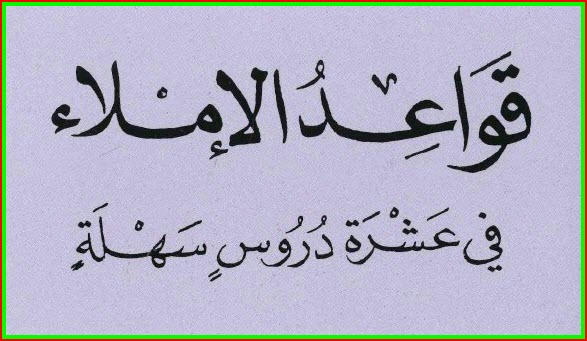 قَوَاعِدُ الإِمْلاء
في عَشْرَة دُرُوسٍ سَهْلَةٍ